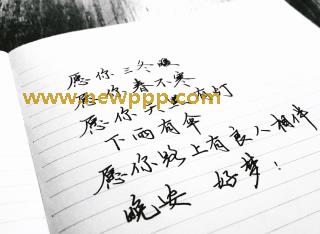 愿你三冬暖
愿你春不寒
www.newppp.com
愿你天黑有灯
下雨有伞
愿你路上有良人相伴
晚安 好梦!